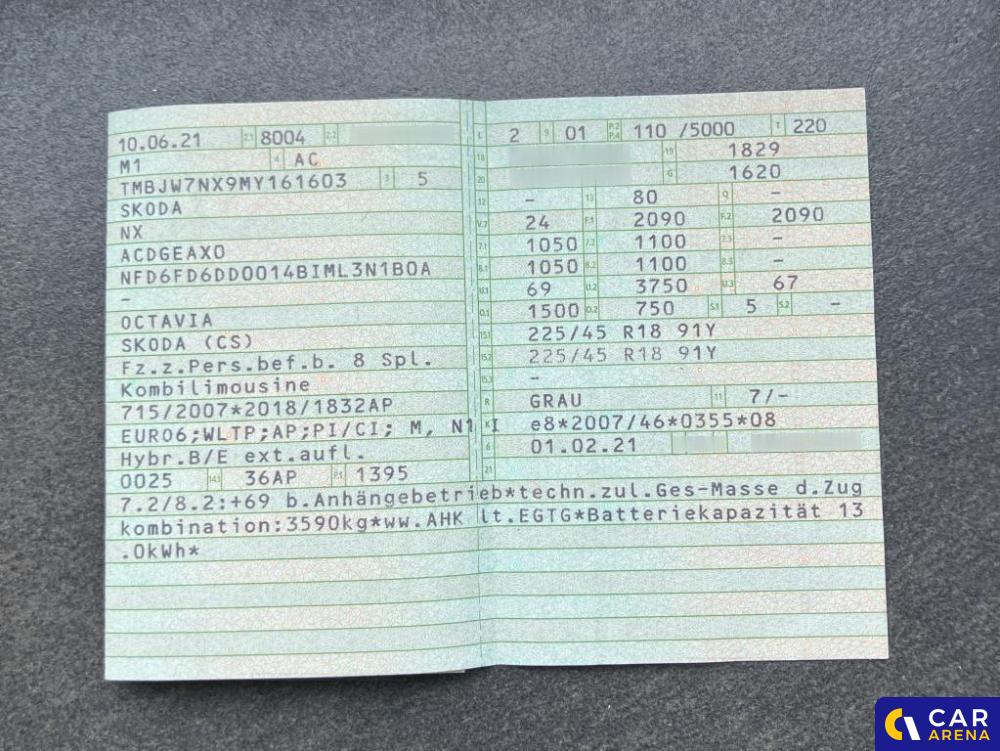 10.06.21 2.1 8004 2.2
M1 4 AC
TMBJW7NX9MY161603 3 5
SKODA
NX
ACDGEAX0
NFD6FD6DD0014BIML3N1B0A
–
OCTAVIA
SKODA (CS)
Fz.z.Pers.bef.b. 8 Spl.
Kombilimousine
715/2007*2018/1832AP
EURO6;WLTP;AP;PI/CI; M, N1 I
Hybr.B/E ext.aufl.
0025 14.1 36AP P.1 1395
L 2 9 01 P.2 P.4 110 /5000 T 220
18 19 1829
20 G 1620
12 – 13 80 Q –
V.7 24 F.1 2090 F.2 2090
7.1 1050 7.2 1100 7.3 –
8.1 1050 8.2 1100 8.3 –
U.1 69 U.2 3750 U.3 67
O.1 1500 O.2 750 S.1 5 S.2 –
15.1 225/45 R18 91Y
15.2 225/45 R18 91Y
15.3 –
R GRAU 11 7/–
K e8*2007/46*0355*08
6 01.02.21
21
7.2/8.2:+69 b.Anhängebetrieb*techn.zul.Ges-Masse d.Zug
kombination:3590kg*ww.AHK lt.EGTG*Batteriekapazität 13
.0kWh*
CAR
ARENA